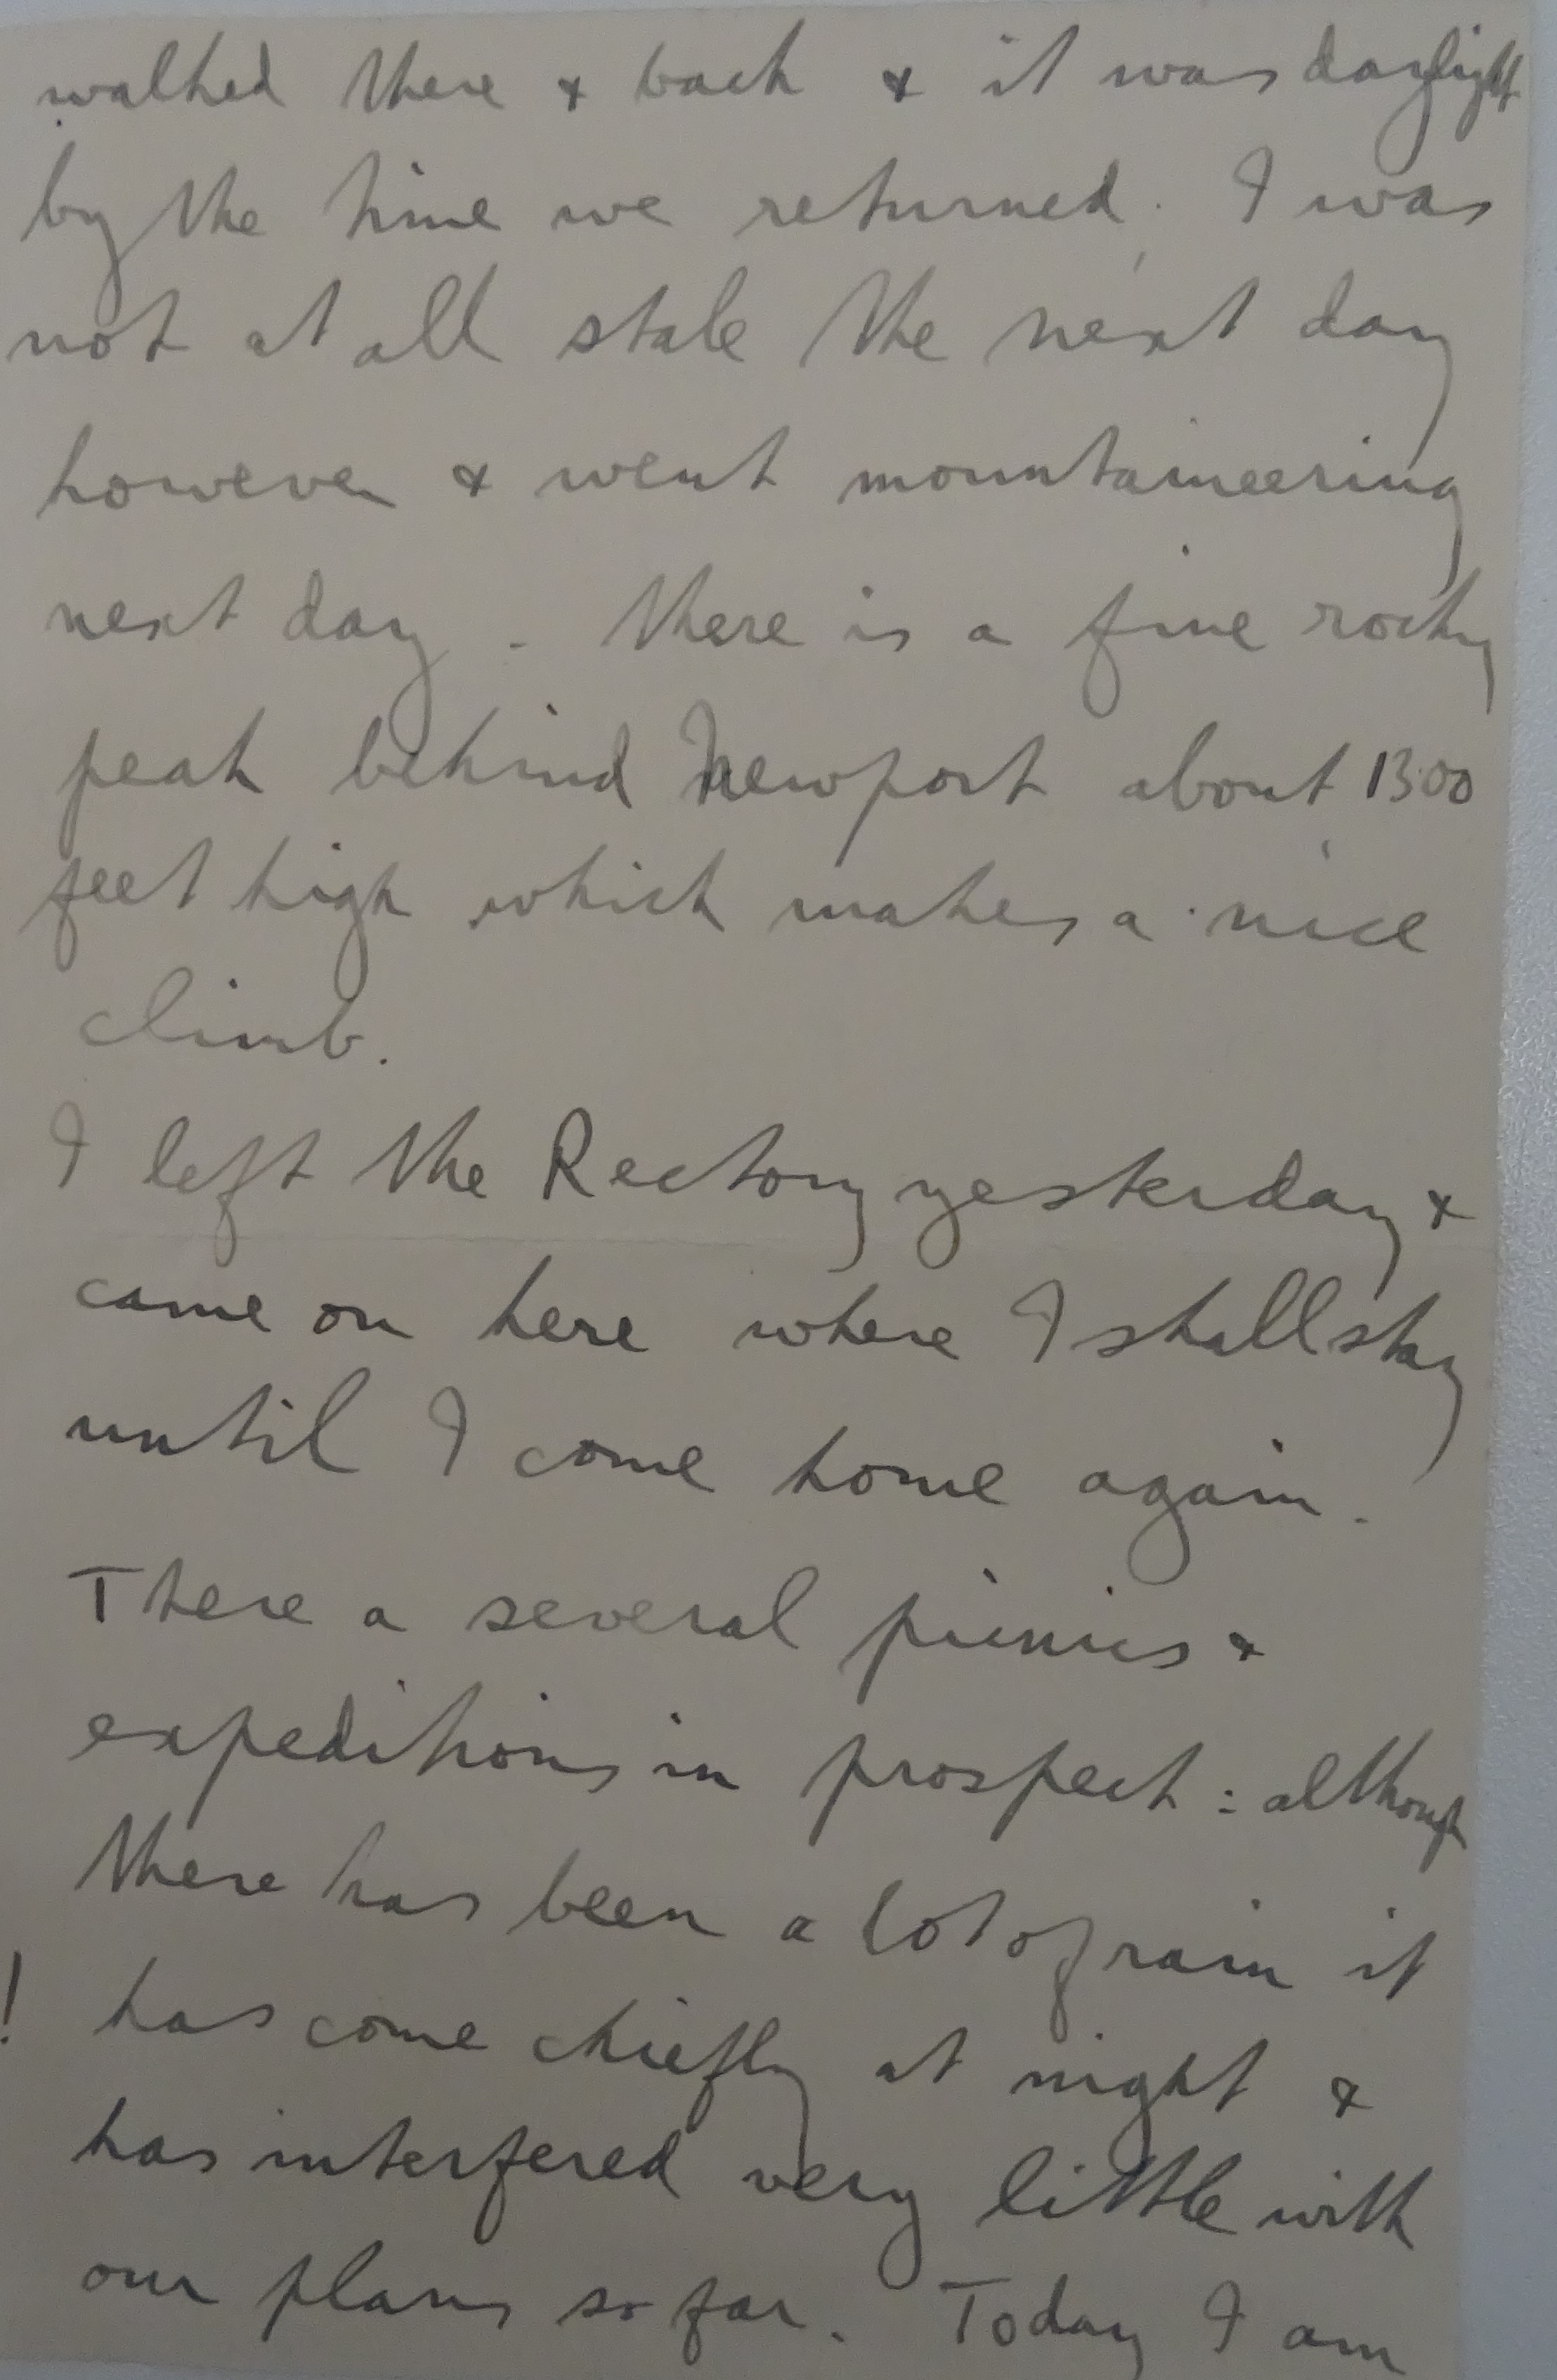 walked there & back & it was daylight
by the time we returned. I was
not at all stale the next day
however & went mountaineering
next day. There is a fine rocky
peak behind Newport about 1300
feet high which makes a nice
climb.
I left the Rectory yesterday &
came on here where I shall stay
until I come home again.
There a several picnics &
expeditions in prospect: although
there has been a lot of rain it
! has come chiefly at night &
has interfered very little with
our plans so far. Today I am